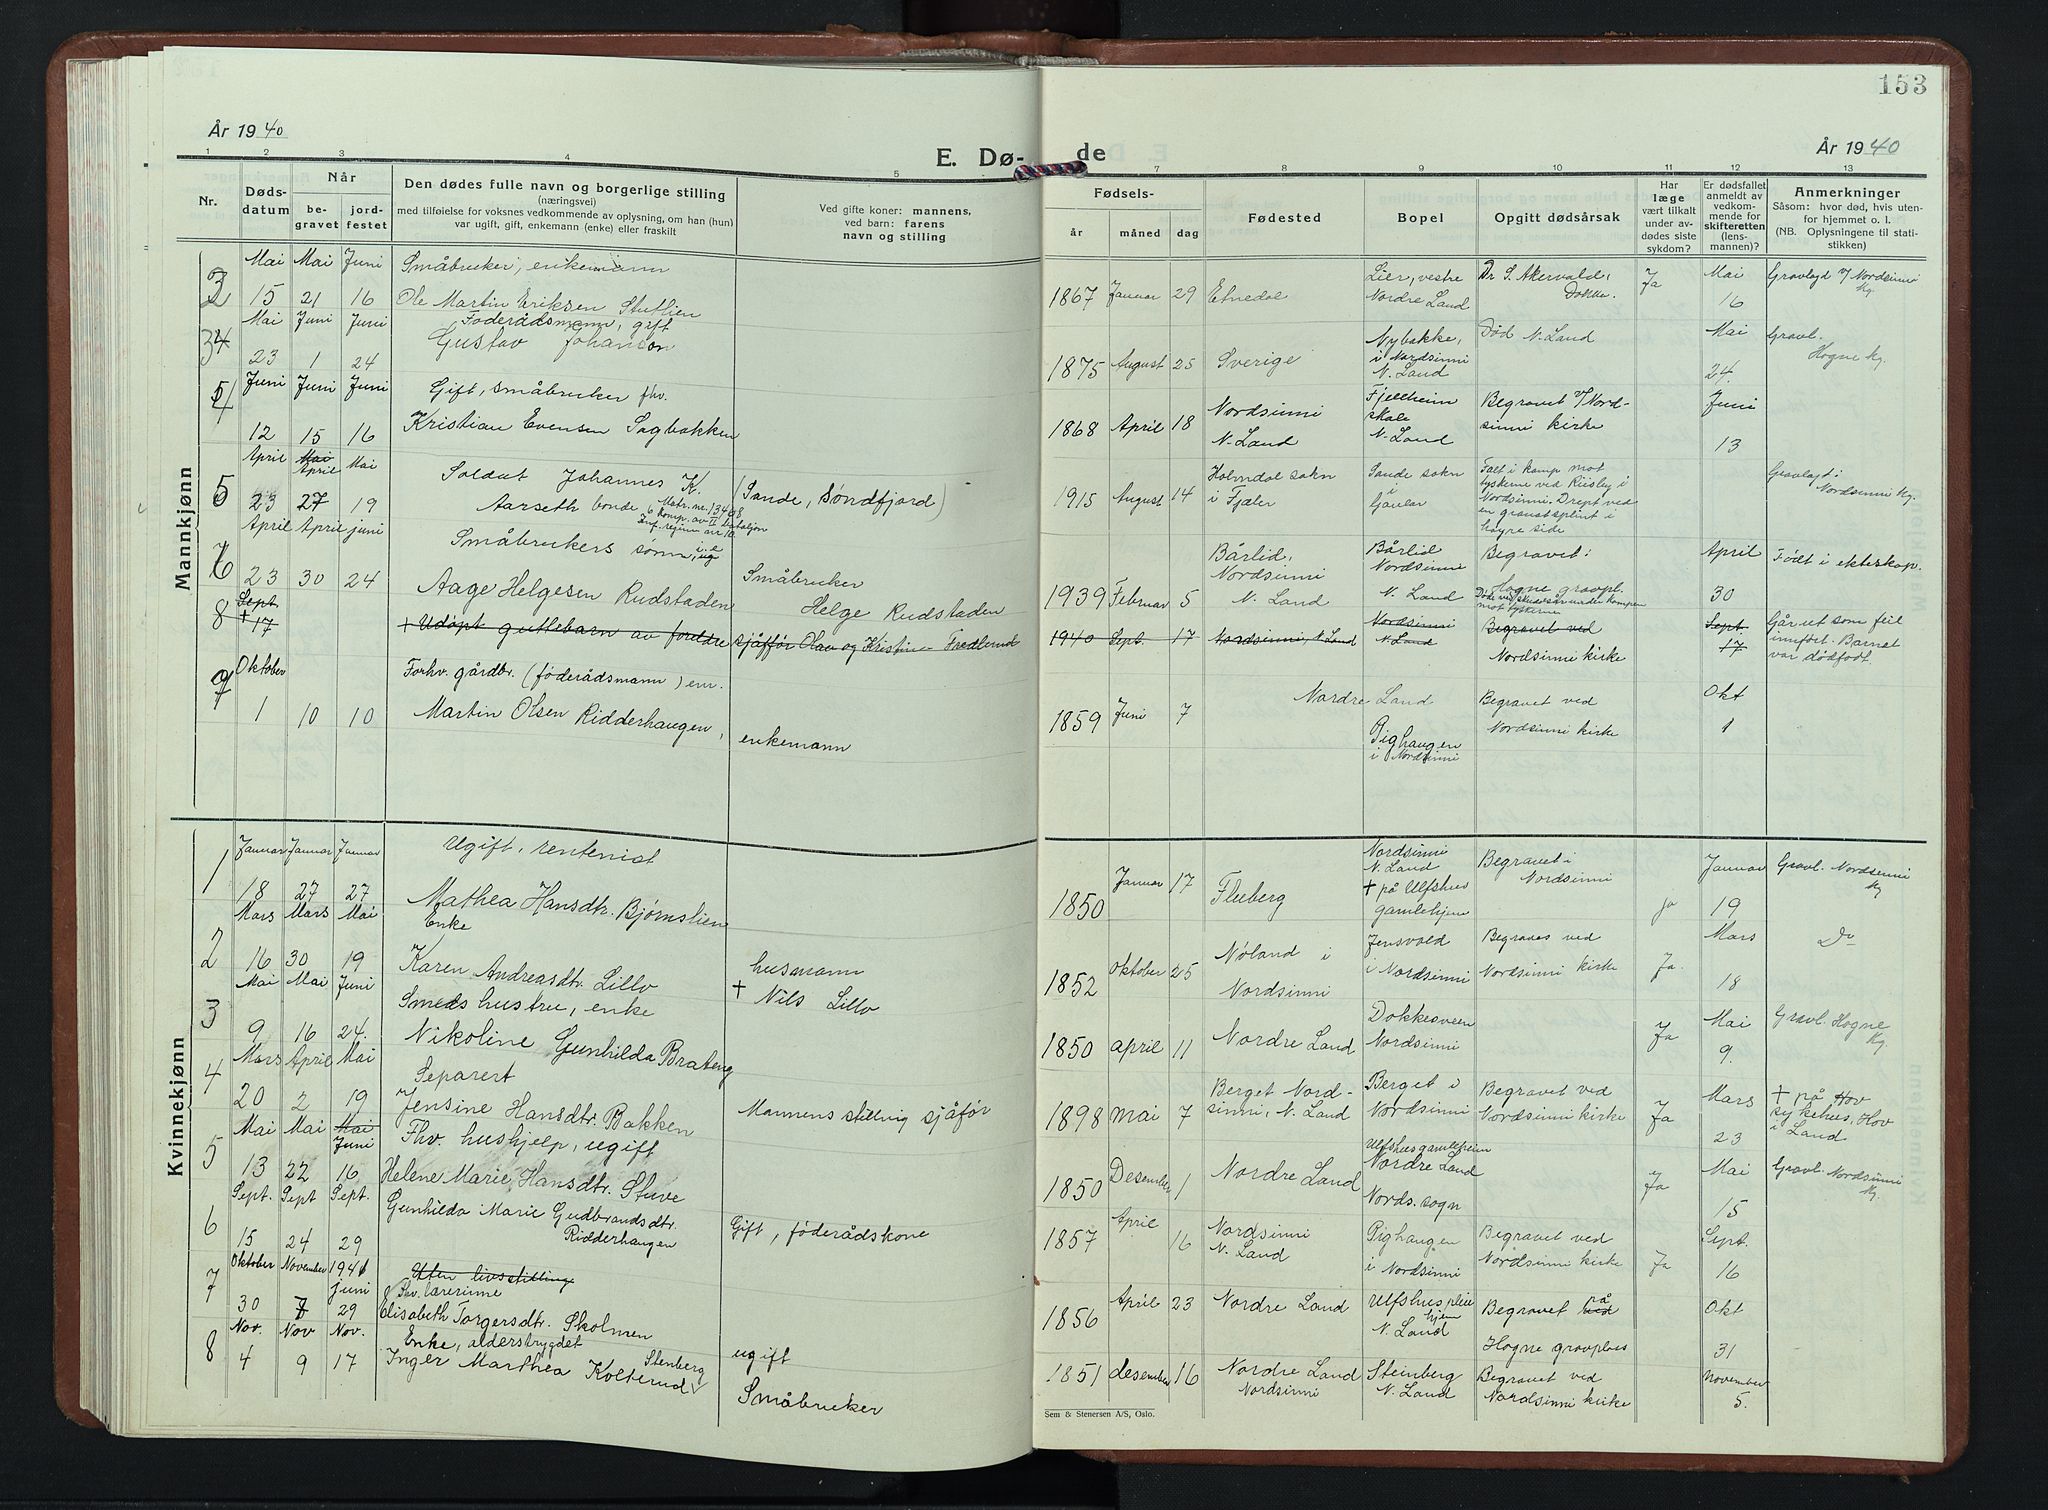 153
År 1940
E. Dø-
de
År 1940
1 2 3 4 5 7 8 9 10 11 12 13
Nr.
Døds-
datum
Når
be-
gravet
jord-
festet
Den dødes fulle navn og borgerlige stilling
(næringsvei)
med tilføielse for voksnes vedkommende av oplysning, om han (hun)
var ugift, gift, enkemann (enke) eller fraskilt
Ved gifte koner: mannens,
ved barn: farens
navn og stilling
Fødsels-
år måned dag
Fødested
Bopel
Opgitt dødsårsak
Har
læge
vært tilkalt
under av-
dødes siste
sykdom?
Er dødsfallet
anmeldt av
vedkom-
mende for
skifteretten
(lens-
mannen)?
Anmerkninger
Såsom: hvor død, hvis uten-
for hjemmet o. l.
(NB. Oplysningene til stati-
stikken)
Mannkjønn
3 Mai 15 Mai 21 Juni 16
Småbruker, enkemann
Ole Martin Eriksen Stutlien
1867 Januar 29 Etnedal
Lier, vestre
Nordre Land
Dr S. Akervald,
Dokka.
Ja
Mai
16
Gravlagd v/ Nordsinni
Kg.
4 Mai 23 Juni 1 Juni 24
Føderådsmann, gift
Gustav Johanson
1875 August 25 Sverige
Nybakke,
i Nordsinni
N. Land
Død N. Land
Mai
24.
Gravl.
Hogne Kg.
5 Juni 12 Juni 15 Juni 16
Gift, småbruker fhv.
Kristian Evensen Sagbakken
1868 April 18
Nordsinni
N. Land
Fjellheim
skole
N. Land
Begravet v/ Nord-
sinni kirke
Juni
13
6 April 23 Mai April 27 Mai 19
Soldat Johannes K.
Aarseth bonde
Matr. nr. 13498
6 Komp. av II bataljon
Inf. regim nr 10
(Sande, Søndfjord)
1915 August 14
Holmdal sokn
i Fjaler
Sande sokn
i
Gaular
Falt i kamp mot
tyskerne ved Riisby i
Nordsinni. Drept ved
en granatsplint i
høyre side
Gravlagt i
Nordsinni Kg.
7 April 23 April 30 juni 24
Småbrukers sønn, ug
Aage Helgesen Rudstaden
Småbruker
Helge Rudstaden
1939 Februar 5
Bårlid,
Nordsinni
N. Land
Bårlid
Nordsinni
N. Land
Begravet:
Hogne gravpl.
Døde ved skuddsår under kampen
mot tyskerne
April
30
Født i ekteskap.
8 Sept. + 17
+ Udøpt guttebarn av foreldre sjåffør Olav og Kristine Fredlund
1940 Sept. 17 Nordsinni, N. Land
Nordsinni
N. Land
Begravet ved
Nordsinni kirke
Sept.
17
Går ut som feil
innført. Barnet
var dødfødt.
9 Oktober 1 10 10
Forhv. gårdbr. (føderådsmann) em.
Martin Olsen Ridderhaugen,
enkemann
1859 Juni 7 Nordre Land
Pighaugen
i Nordsinni
Begravet ved
Nordsinni kirke
Okt
1
Kvinnekjønn
1 Januar 18 Januar 27 Januar 27
Ugift, rentenist
Mathea Hansdtr. Bjørnslien
1850 Januar 17 Fluberg
Nordsinni
N. Land
+ på Ulfshus
gamlehjem
Begravet i
Nordsinni
ja
Januar
19
Gravl. Nordsinni
Kg
2 Mars 16 Mars 30 Mai 19
Enke
Karen Andreasdtr. Lillo
husmann
+ Nils Lillo
1852 Oktober 25
Nøland i
Nordsinni
Jensvold
i Nordsinni
Begraves ved
Nordsinni kirke
Ja.
Mars
18
Do
3 Mai 9 Mai 16 Juni 24.
Smeds hustru, enke
Nikoline Gunhilda Brateng
1850 april 11 Nordre Land
Dokkesveen
Nordsinni
Ja
Mai
9.
Gravl. Hogne
Kg.
4 Mars 20 April 2 Mai 19
Separert
Jensine Hansdtr. Bakken
Mannens stilling sjåfør
1898 mai 7
Berget Nord-
sinni, N. Land
Berget i
Nordsinni
Begravet ved
Nordsinni kirke
Ja
Mars
23
+ på Hov
sykehus, Hov
i Land
5 Mai 13 Mai 22 Mai Juni 16
Fhv. hushjelp, ugift
Helene Marie Hansdtr. Stuve
1850 Desember 1 Nordre Land
Ulfshus gamleheim
Nordre Land
Nords. sogn
Ja
Mai
15
Gravl. Nordsinni
Kg.
6 Sept. 15 Sept 24 Sept. 29
Gunhilda Marie Gudbrandsdtr.
Ridderhaugen
Gift, føderådskone
1857 April 16
Nordsinni
N. Land
Pighaugen
i Nordsinni
Begravet ved
Nordsinni kirke
Ja
Sept.
16
7 Oktober 30 November 8 1941 juni 29
Uten livsstilling
Fhv. lærerinne
Elisabeth Torgersdtr. Skolmen
ugift
1856 April 23 Nordre Land
Ulfshus pleie
hjem
N. Land
Begravet ved på
Hogne gravplass
Okt
31
8 Nov. 4 Nov 9 Nov. 17
Enke, alderstrygdet
Inger Marthea Kolterud
Stenberg
Småbruker
1851 desember 16
Nordre Land
Nordsinni
Steinberg
N. Land
Begravet ved
Nordsinni kirke
November
5.
Sem & Stenersen A/S, Oslo.